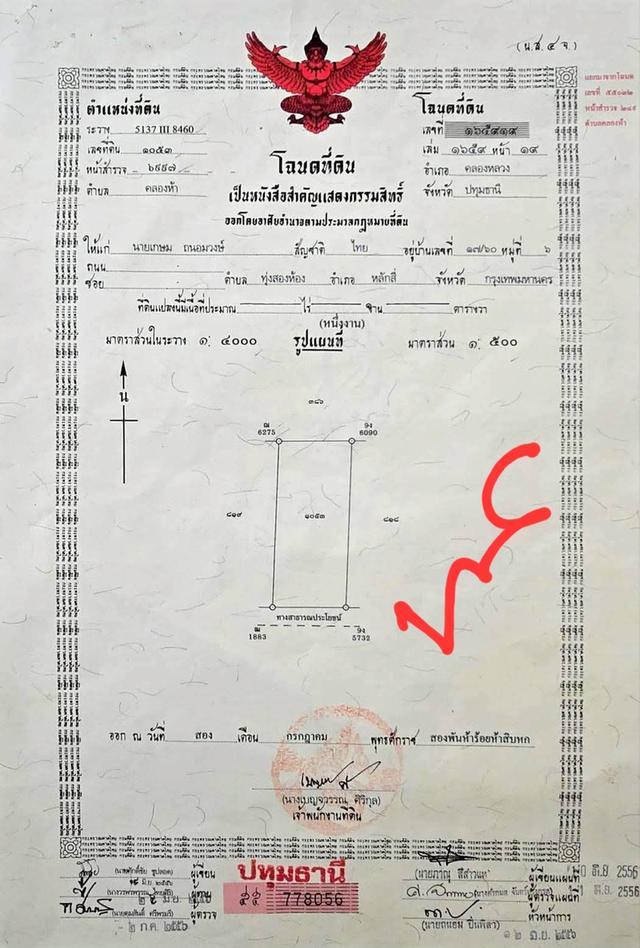 (น.ส.๔ จ.)
ตำแหน่งที่ดิน
ระวาง 5137 III 8460
เลขที่ดิน ๑๐๕๓
หน้าสำรวจ ๒๙๙๗
ตำบล คลองห้า
โฉนดที่ดิน
เลขที่ ๑๖๔๙๑๙
เล่ม ๑๖๕๙ หน้า ๑๙
อำเภอ คลองหลวง
จังหวัด ปทุมธานี
แยกมาจากโฉนด
เลขที่ ๕๕๐๒๒
หน้าสำรวจ ๒๘๙
ตำบลคลองห้า
โฉนดที่ดิน
เป็นหนังสือสำคัญแสดงกรรมสิทธิ์
ออกโดยอาศัยอำนาจตามประมวลกฎหมายที่ดิน
ให้แก่ นายเกษม ถนอมวงษ์ สัญชาติ ไทย อยู่บ้านเลขที่ ๑๗/๖๐ หมู่ที่ ๖
ถนน
ซอย ตำบล ทุ่งสองห้อง อำเภอ หลักสี่ จังหวัด กรุงเทพมหานคร
ที่ดินแปลงนี้มีเนื้อที่ประมาณ ไร่ งาน ตารางวา
(หนึ่งงาน)
มาตราส่วนในระวาง ๑: ๔๐๐๐ รูปแผนที่ มาตราส่วน ๑: ๕๐๐
น
๓๘๖
ฌ 6275 9ง 6090
๘๑๙ ๑๐๕๓ ๘๑๘
ทางสาธารณประโยชน์
ฌ 1883 9ง 5732
ขาย
ออก ณ วันที่ สอง เดือน กรกฎาคม พุทธศักราช สองพันห้าร้อยห้าสิบหก
(นางเบญจวรรณ ศิริกุล)
เจ้าพนักงานที่ดิน
ผู้เขียน
ผู้ทาน
ผู้ตรวจ
- ๒ ก.ค. ๒๕๕๖
ปทุมธานี
๕๕ 778056
ผู้เขียนแผนที่
ผู้ตรวจแผนที่
หัวหน้าการ
(นายถนอม ปิ่นพิลา)
๑๒ มิ.ย. ๒๕๕๖